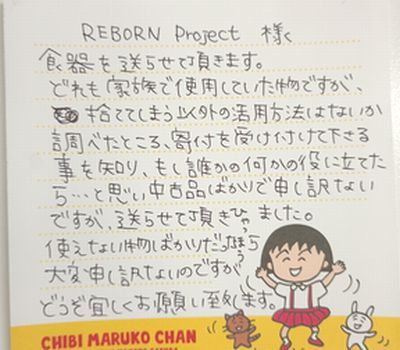 REBORN Project 様
食器を送らせて頂きます。
どれも家族で使用していた物ですが、
捨ててしまう以外の活用方法はないか
調べたところ、寄付を受け付けて下さる
事を知り、もし誰かの何かの役に立てた
ら…と思い中古品ばかりで申し訳ない
ですが、送らせて頂きました。
使えない物ばかりだったら
大変申し訳ないのですが
どうぞ宜しくお願い致します。
CHIBI MARUKO CHAN